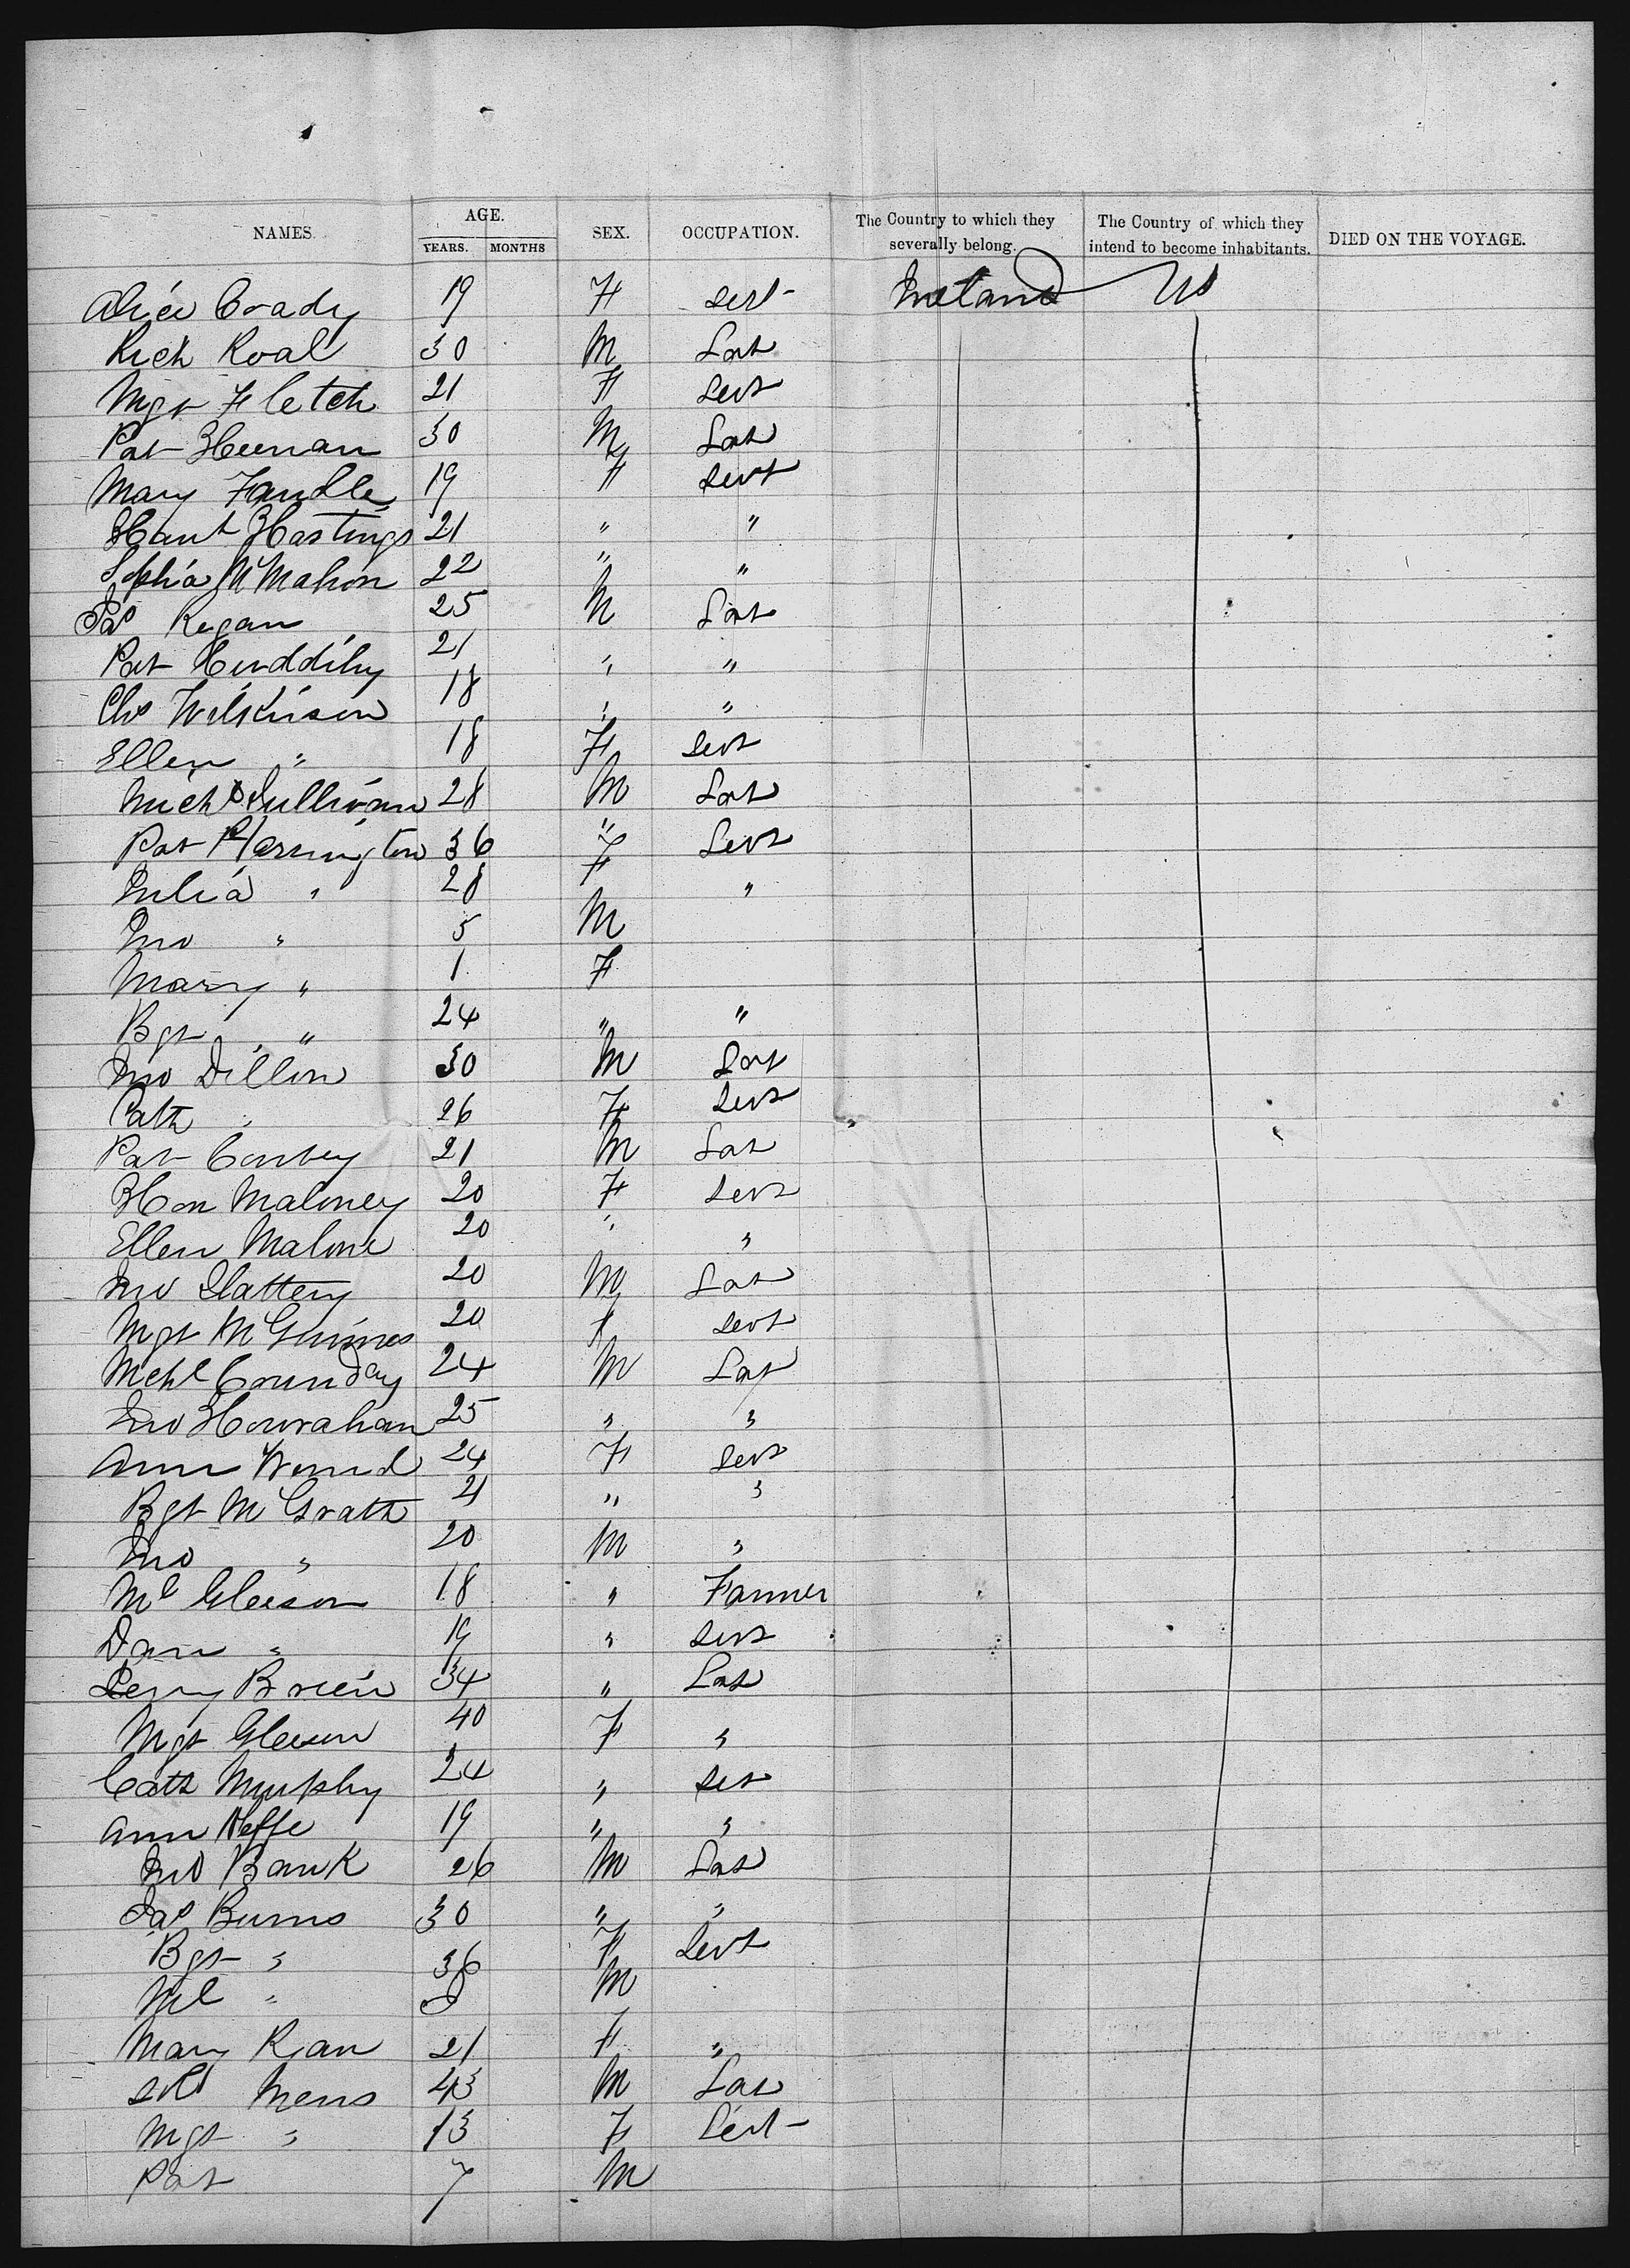 NAMES. AGE. YEARS. MONTHS SEX. OCCUPATION. The Country to which they severally belong. The Country of which they intend to become inhabitants. DIED ON THE VOYAGE.
Alice Grady 19 F Sert Ireland US
Rich Roal 30 M Lab
Mgt Fletch 21 F Sert
Pat Heenan 30 M Lab
Mary Fandle 19 F Servt
Hant Hastings 21 " "
Sophia McMahon 22 " "
Jas Regan 25 M Lab
Pat Cuddihy 21 " "
Chs Wilkinson 18 " "
Ellen " 18 F Servt
Mich Sullivan 28 M Lab
Pat Harrington 36 " Servt
Julia " 28 F "
Jno " 5 M
Mary " 1 F
Bgt " 24 " "
Jno Dillon 30 M Lab
Cath " 26 F Servt
Pat Conbey 21 M Lab
Hon Maloney 20 F Servt
Ellen Malone 20 " "
Jno Slattery 20 M Lab
Mgt McGuines 20 F Servt
Mchl Counday 24 M Lab
Jno Hourahan 25 " "
Ann 24 F Servt
Bgt McGrath 21 " "
Jno " 20 M "
Ml Gleeson 18 " Farmer
Dan " 19 " Servt
Breen 34 " Lab
Mgt Gleeson 40 F "
Cath Murphy 24 " Ser
Ann Neffe 19 " "
Jno Bank 26 M Lab
Jas Burns 30 " "
Bgt " 36 F Servt
Ml " M
Mary Ryan 21 F "
Mens 43 M Lab
Mgt " 13 F Sert
Pat 7 M